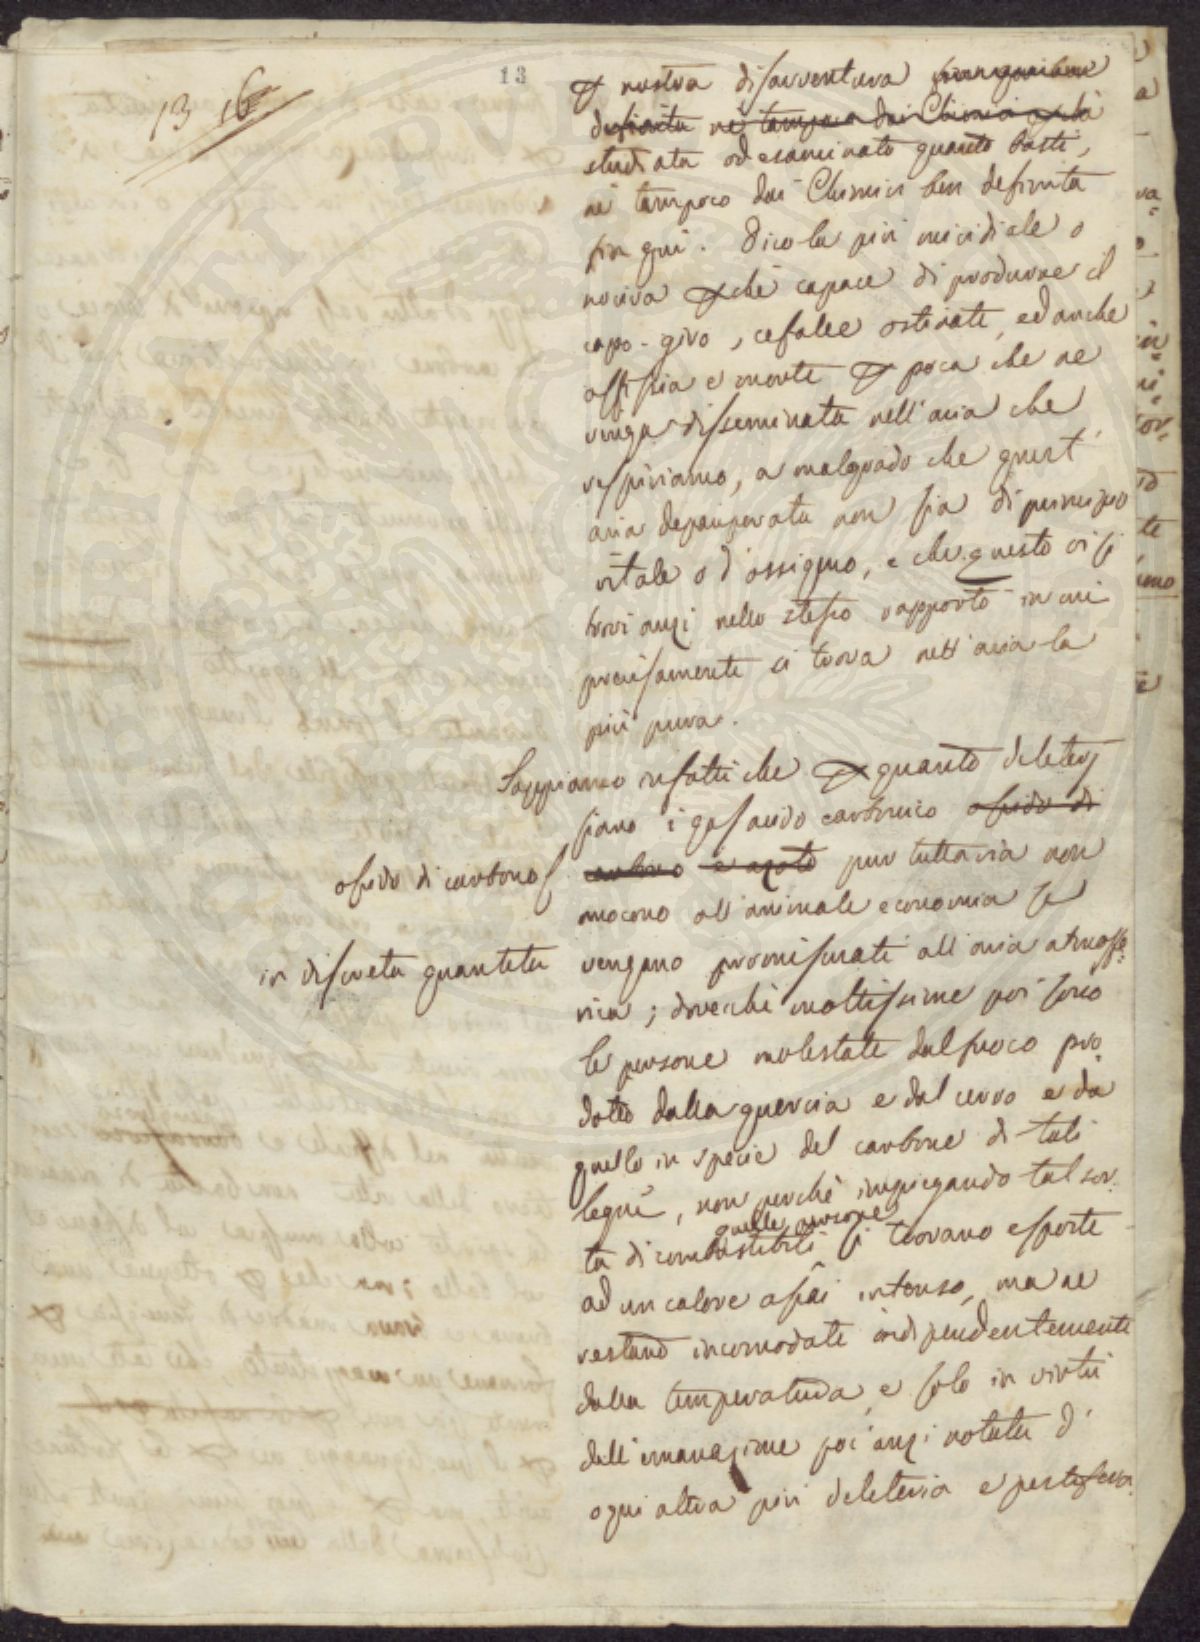 13
13 16
p nostra disavventura
definita nè tampoco dai Chimici
studiata od esaminata quanto basti,
nè tampoco dai Chimici ben definita
fin qui. Dico la più micidiale o
nociva pchè capace di produrre il
capo-giro, cefalee ostinate, ed anche
assissia e morte p poca che ne
venga disseminata nell'aria che
respiriamo, a malgrado che quest'
aria depauperata non sia di principio
vitale o d'ossigeno, e che questo vi si
trovi anzi nello stesso rapporto in cui
precisamente si trova nell'aria la
più pura.
Sappiamo infatti che p quanto deleterj
siano i gas acido carbonico ossido di
ossido di carbonos carbono e azoto pur tuttavia non
nuocono all'animale economia se
in discreta quantità vengano promiscuati all'aria atmosfe-
rica; dovechè moltissime poi sono
le persone molestate dal fuoco pro-
dotto dalla quercia e dal cerro e da
quello in specie del carbone di tali
legni, non perchè impiegando tal sor-
quelle persone
ta di combustibili si trovano esposte
ad un calore assai intenso, ma ne
restano incomodate indipendentemente
dalla temperatura, e solo in virtù
dell'emanazione poc'anzi notata d'
ogni altra più deleteria e pestifera.